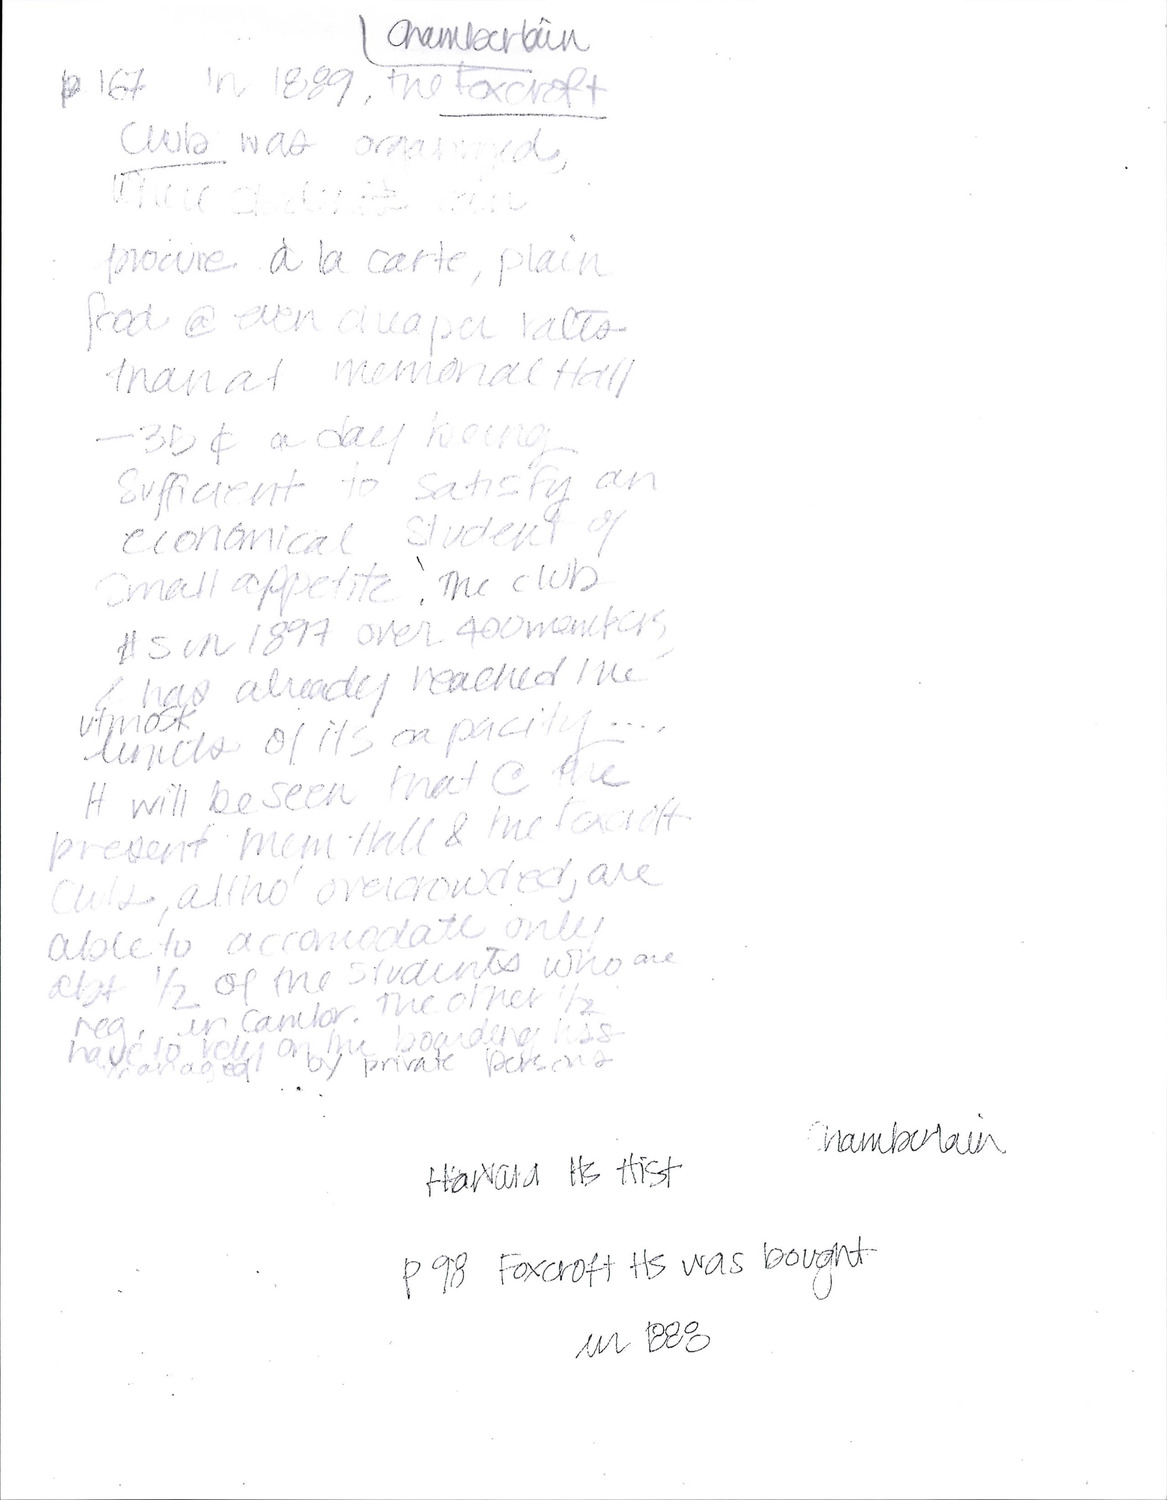 Chamberlain
p 167 In 1889, the Foxcroft
Club was organized,
where students can
procure à la carte, plain
food @ even cheaper rates
than at Memorial Hall
— 35 ¢ a day being
sufficient to satisfy an
economical student of
small appetite! The club
Hs in 1897 over 400 members,
& has already reached the
utmost
limits of its capacity ....
It will be seen that @ the
present Mem Hall & the Foxcroft
Club, altho' overcrowded, are
able to accomodate only
abt 1/2 of the students who are
reg. in Cambr. The other 1/2
have to rely on the boarding hss
managed by private persons
Chamberlain
Harvard Hs Hist
p 98 Foxcroft Hs was bought
in 1888